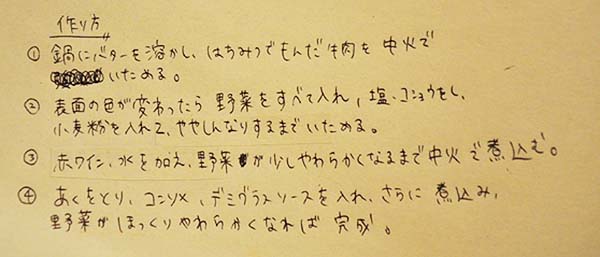 作り方
① 鍋にバターを溶かし、はちみつでもんだ牛肉を中火で
いためる。
② 表面の色が変わったら野菜をすべて入れ、塩・コショウをし、
小麦粉を入れて、ややしんなりするまでいためる。
③ 赤ワイン、水を加え、野菜が少しやわらかくなるまで中火で煮込む。
④ あくをとり、コンソメ、デミグラスソースを入れ、さらに煮込み、
野菜がほっくりやわらかくなれば完成。